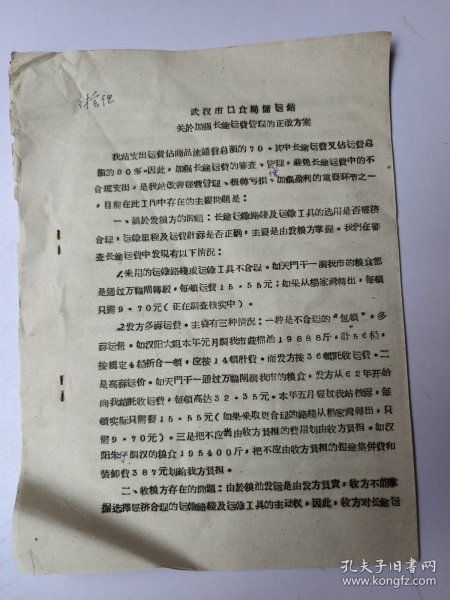 武汉市口食局储运站
关於加强长输运费管理的正改方案
我站支出运费佔商品流通费总额的70。其中长输运费又佔运费总
额的80%。因此,加强长输运费的审查、管理,避免长输运费中的不
合理支出,是我站改善经营管理、扭转亏损、加强盈利的重要环节之一。
目前在此工作中存在的主要问题是:
一、属於发粮方的问题:长输运输路线及运输工具的选用是否经济
合理,运输里程及运费计算是否正确,主要是由发粮方掌握。我们在审
查长输运费中发现有以下情况:
1采用的运输路线或运输工具不合理。如天门干一调我市的粮食都
是通过万 闸转驳,每顿运费15.55元;如果从杨家湾转出,每顿
只需9.70元(正在调查核实中)。
2发方多算运费。主要有三种情况:一种是不合理的“包顿”,多
算运量。如汉阳大咀本年元月调我市 棉油19888斤,计56桶,
按规定4桶折合一顿,应按14顿计费。而发方按36顿托收运费。二
是高算运价。如天门干一通过万 闸调我市的粮食,发方从62年元月
向我站托收运费,每顿高达32.35元。本年五月经过我站核算,每
顿实际只需要15.55元(如果采取更合理的路线从杨家湾转出,只
需9.70元)。三是把不应当由收方负担的费用划由收方负担。如汉
阳朱 调汉的粮食195400斤,把不应由收方负担的短途集併费和
装卸费387元划给我方负担。
二、收粮方存在的问题:由於粮油发运是由发方负责,收方不能掌
握选择经济合理的运输路线及运输工具的主动权,因此,收方对长输运
孔夫子旧书网
www.kongfz.com